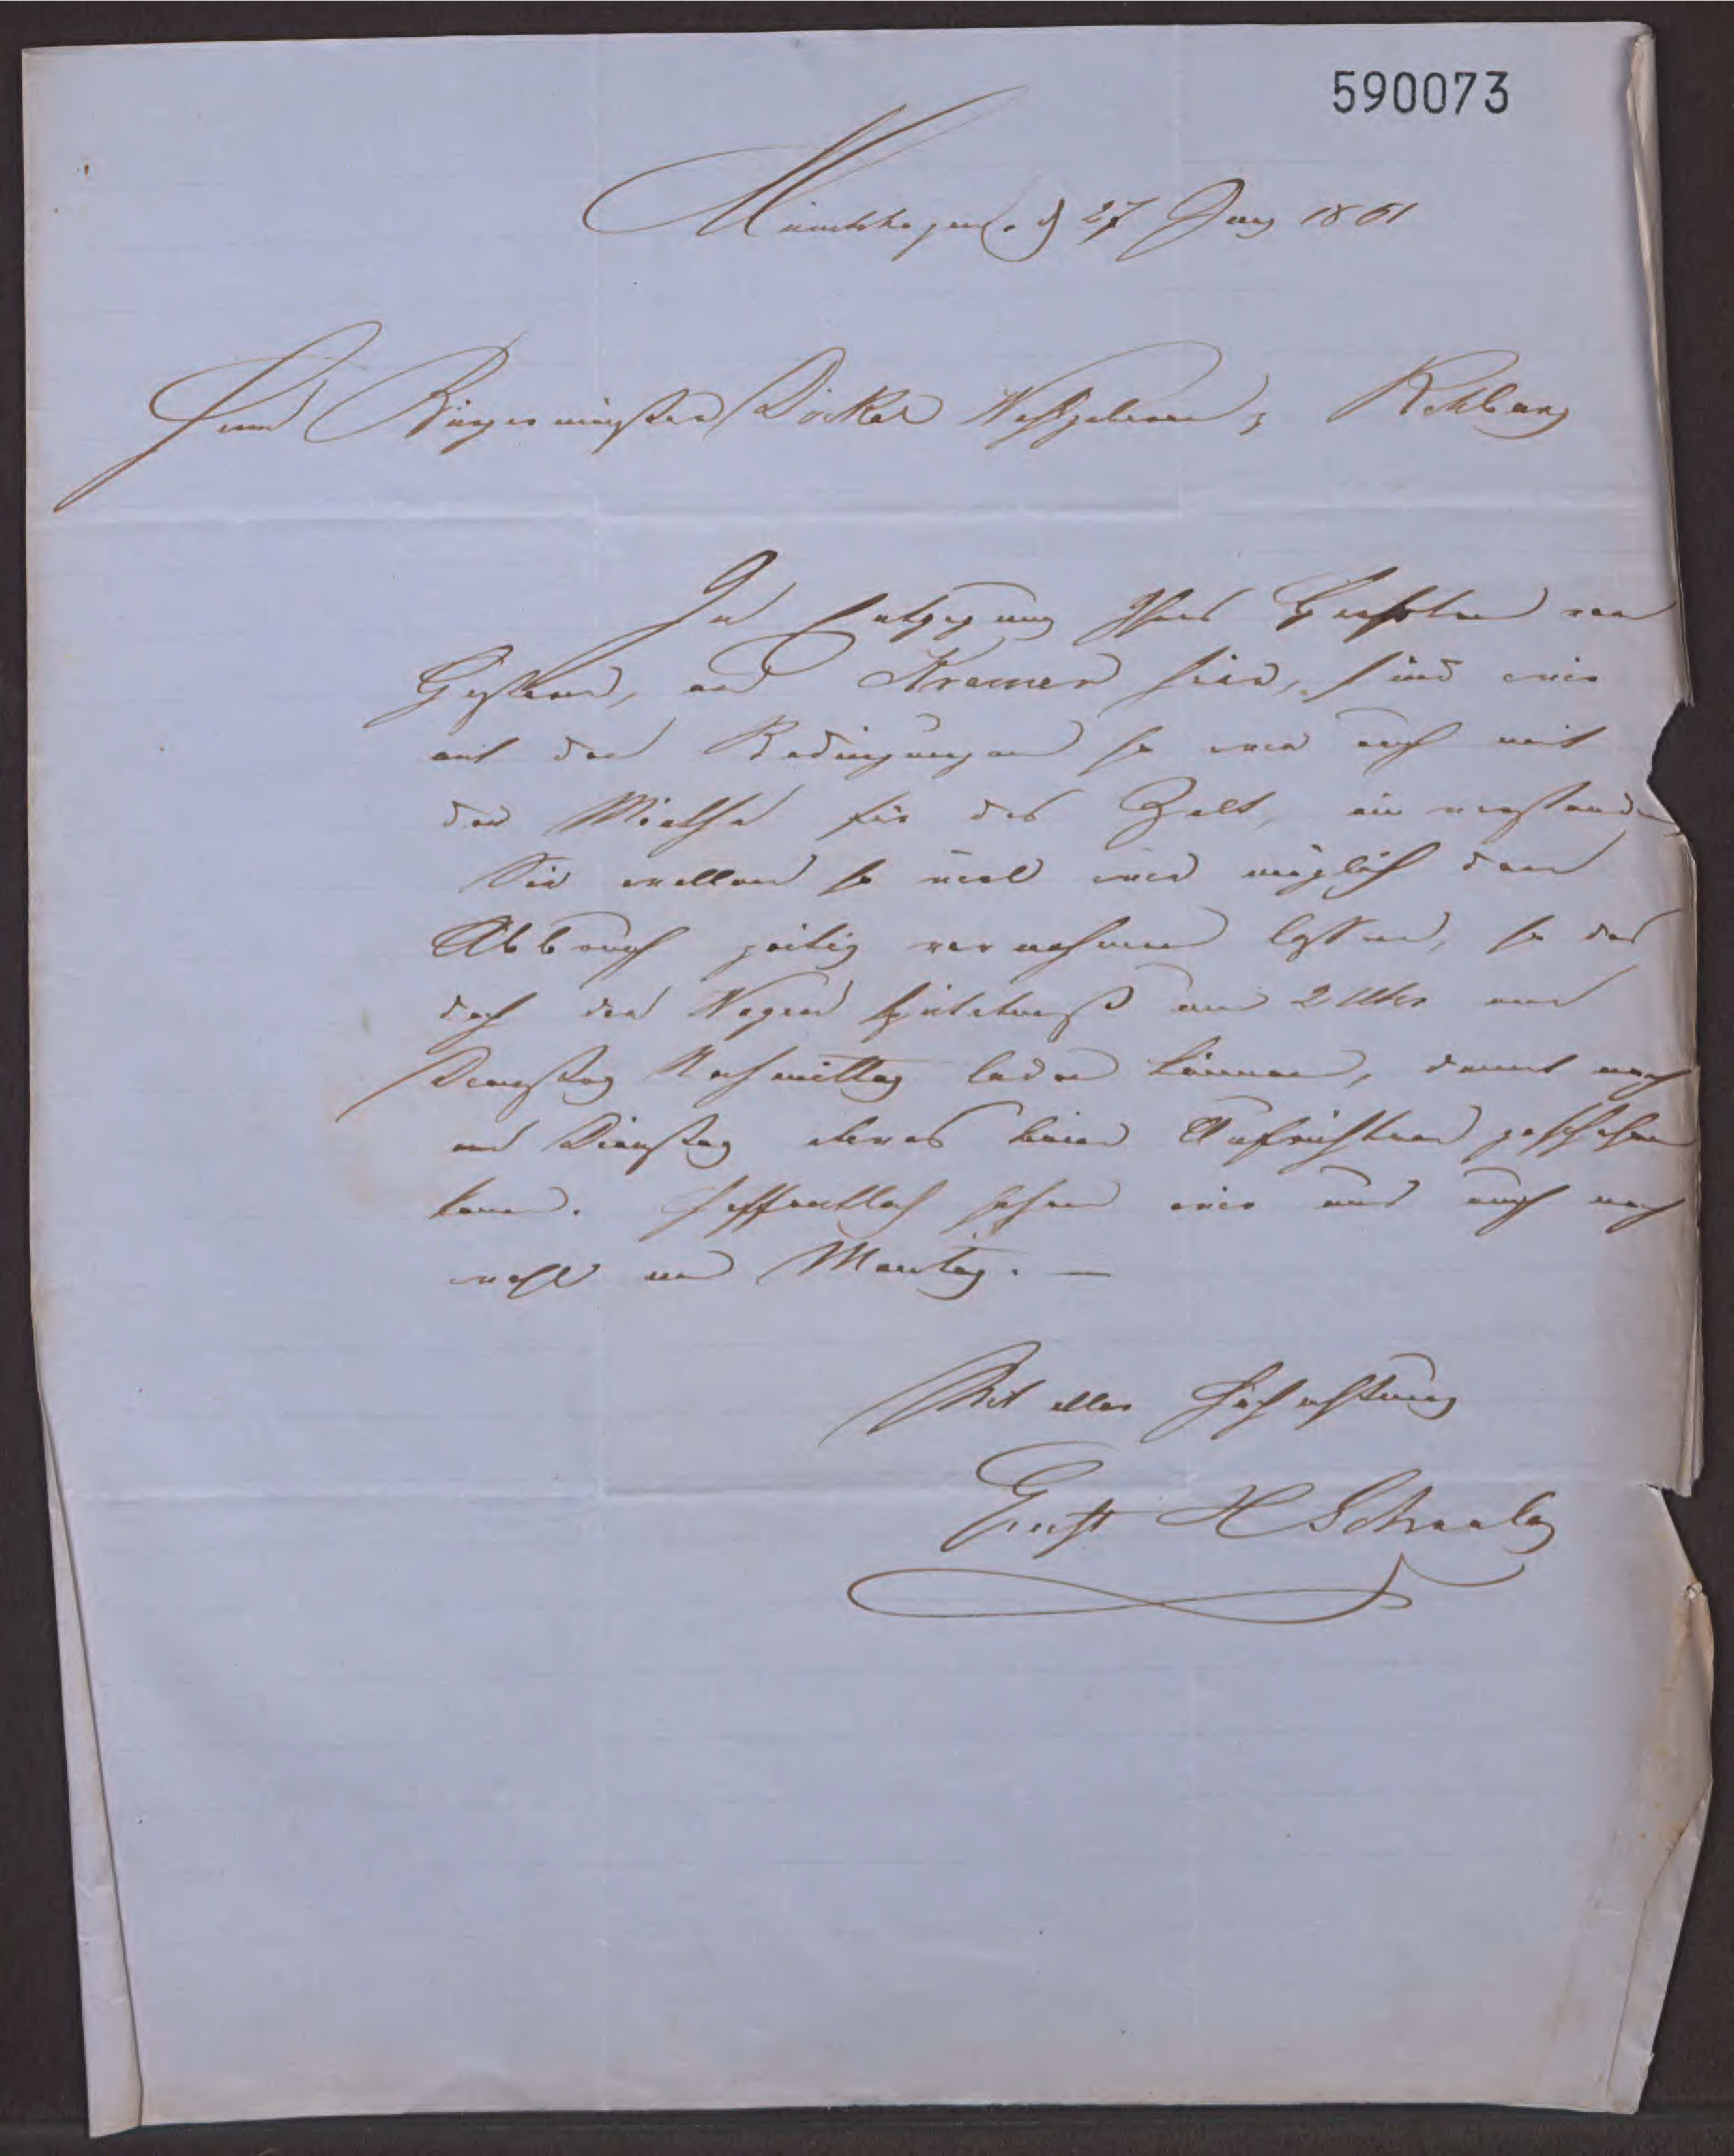 590073
Münchhagen d 27 Juny 1861
Herrn Bürgermeister Dökel Wohlgeboren, Rehburg
In Entgegnung Ihres Geehrten von
Gestern, an Kremer hier, sind wir
mit den Bedingungen so wie auch mit
der Miethe für das Zelt, einverstanden
Sie wollen so viel wie möglich den
Abbruch zeitig vornehmen lassen, so das
doch der Wagen spätetens um 2 Uhr am
Dienstag Nachmittag laden können, damit noch
am Dienstag etwas beim Aufrichten geschehen
kann. Hoffentlich sehen wir uns auch noch
wohl am Montag. —
Mit aller Hochachtung
Ernst H